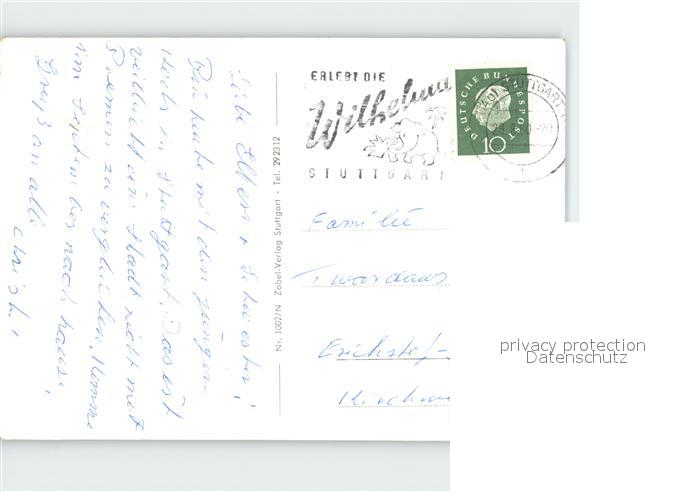 Liebe Eltern + Schwester!
Bin heute mit den Jungen
noch in Stuttgart. Das ist
vielleicht eine Stadt nicht mit
Bremen zu vergleichen. Komme
im September nach Hause.
Gruß an alle
Christ
Nr. 1002/N Zobel-Verlag Stuttgart · Tel. 292312
ERLEBT DIE
Wilhelma
STUTTGART
STUTTGART
DEUTSCHE BUNDESPOST
10
Familie
Twardaws
Erichstef-
Kirchw
privacy protection
Datenschutz